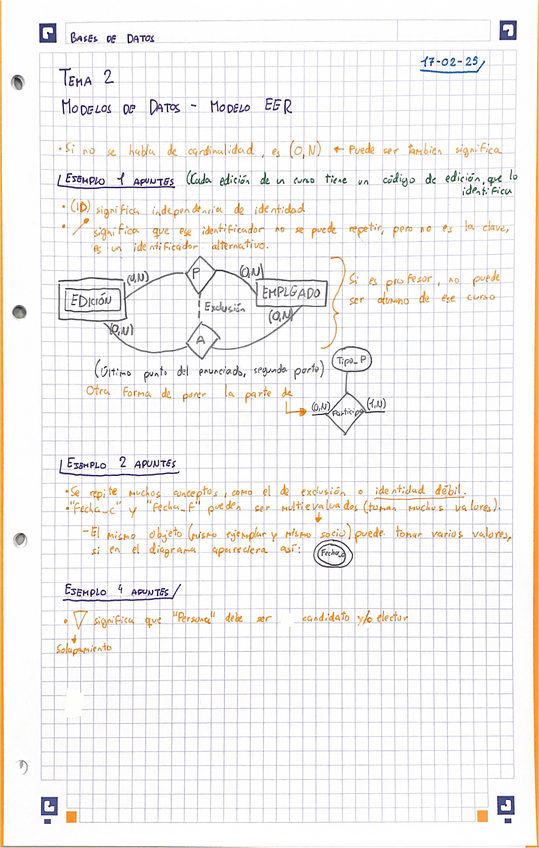 BASES DE DATOS
17-02-25
TEMA 2
MODELOS DE DATOS - MODELO EER
• Si no se habla de cardinalidad, es (0,N) ← Puede ser también significa
EJEMPLO 1 APUNTES (Cada edición de un curso tiene un código de edición, que lo
identifica
• (ID) significa independencia de identidad
• significa que ese identificador no se puede repetir, pero no es la clave,
es un identificador alternativo.
(0,N) P (0,N)
EDICIÓN Exclusión EMPLEADO
(0,N) A (0,N)
Si es profesor, no puede
ser alumno de ese curso
(Último punto del enunciado, segunda parte)
Tipo_P
Otra forma de poner la parte de
(0,N) Participa (1,N)
EJEMPLO 2 APUNTES
• Se repite muchos conceptos, como el de exclusión o identidad débil.
• "Fecha_C" y "Fecha_F" pueden ser multievaluados (toman muchos valores).
- El mismo objeto (mismo ejemplar y mismo socio) puede tomar varios valores,
si en el diagrama apareciera así: Fecha_C
EJEMPLO 4 APUNTES
• significa que "Persona" debe ser candidato y/o elector
Solapamiento